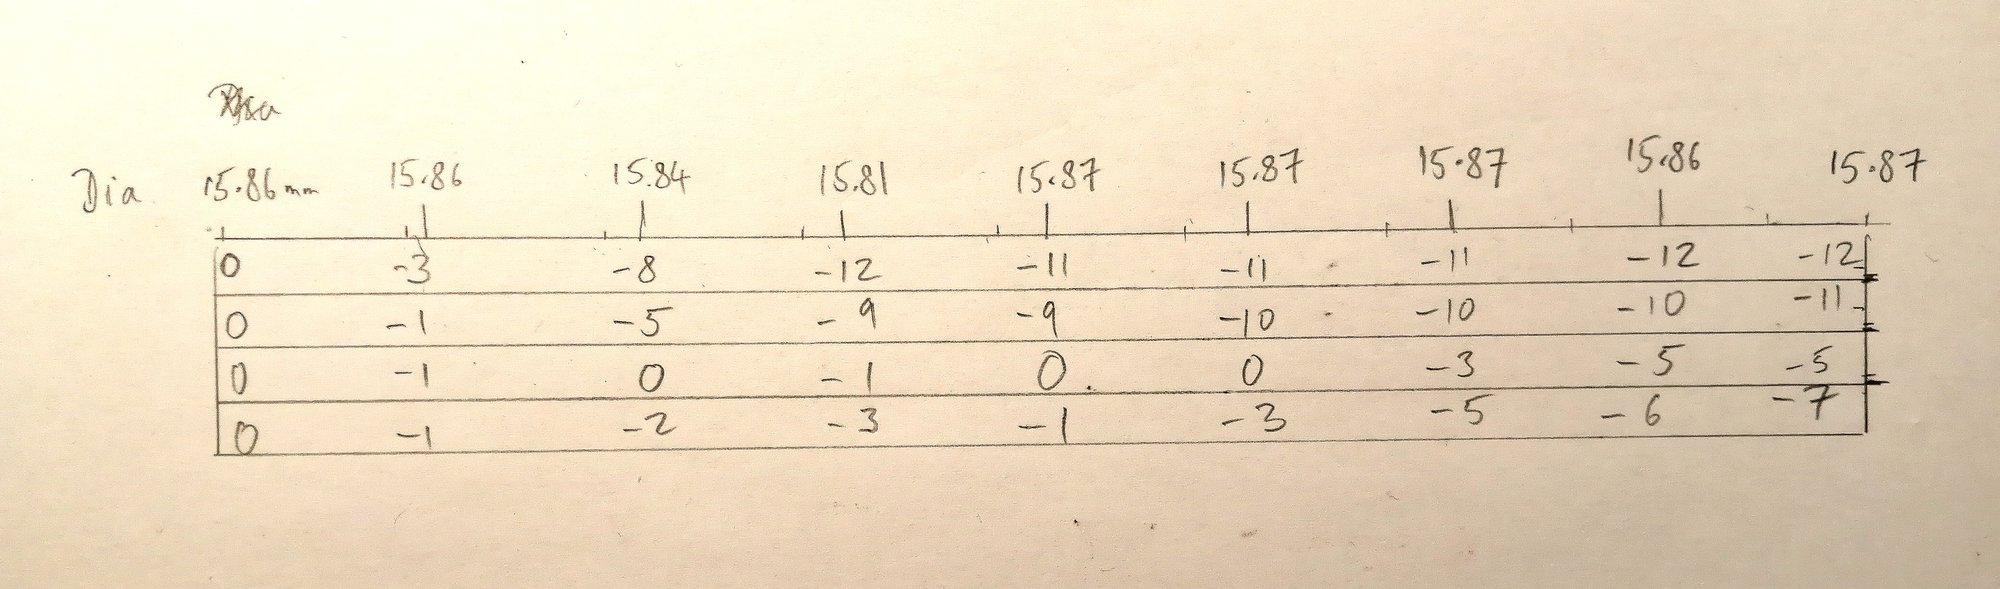 Dia 15.86mm 15.86 15.84 15.81 15.87 15.87 15.87 15.86 15.87
0 -3 -8 -12 -11 -11 -11 -12 -12
0 -1 -5 -9 -9 -10 -10 -10 -11
0 -1 0 -1 0 0 -3 -5 -5
0 -1 -2 -3 -1 -3 -5 -6 -7